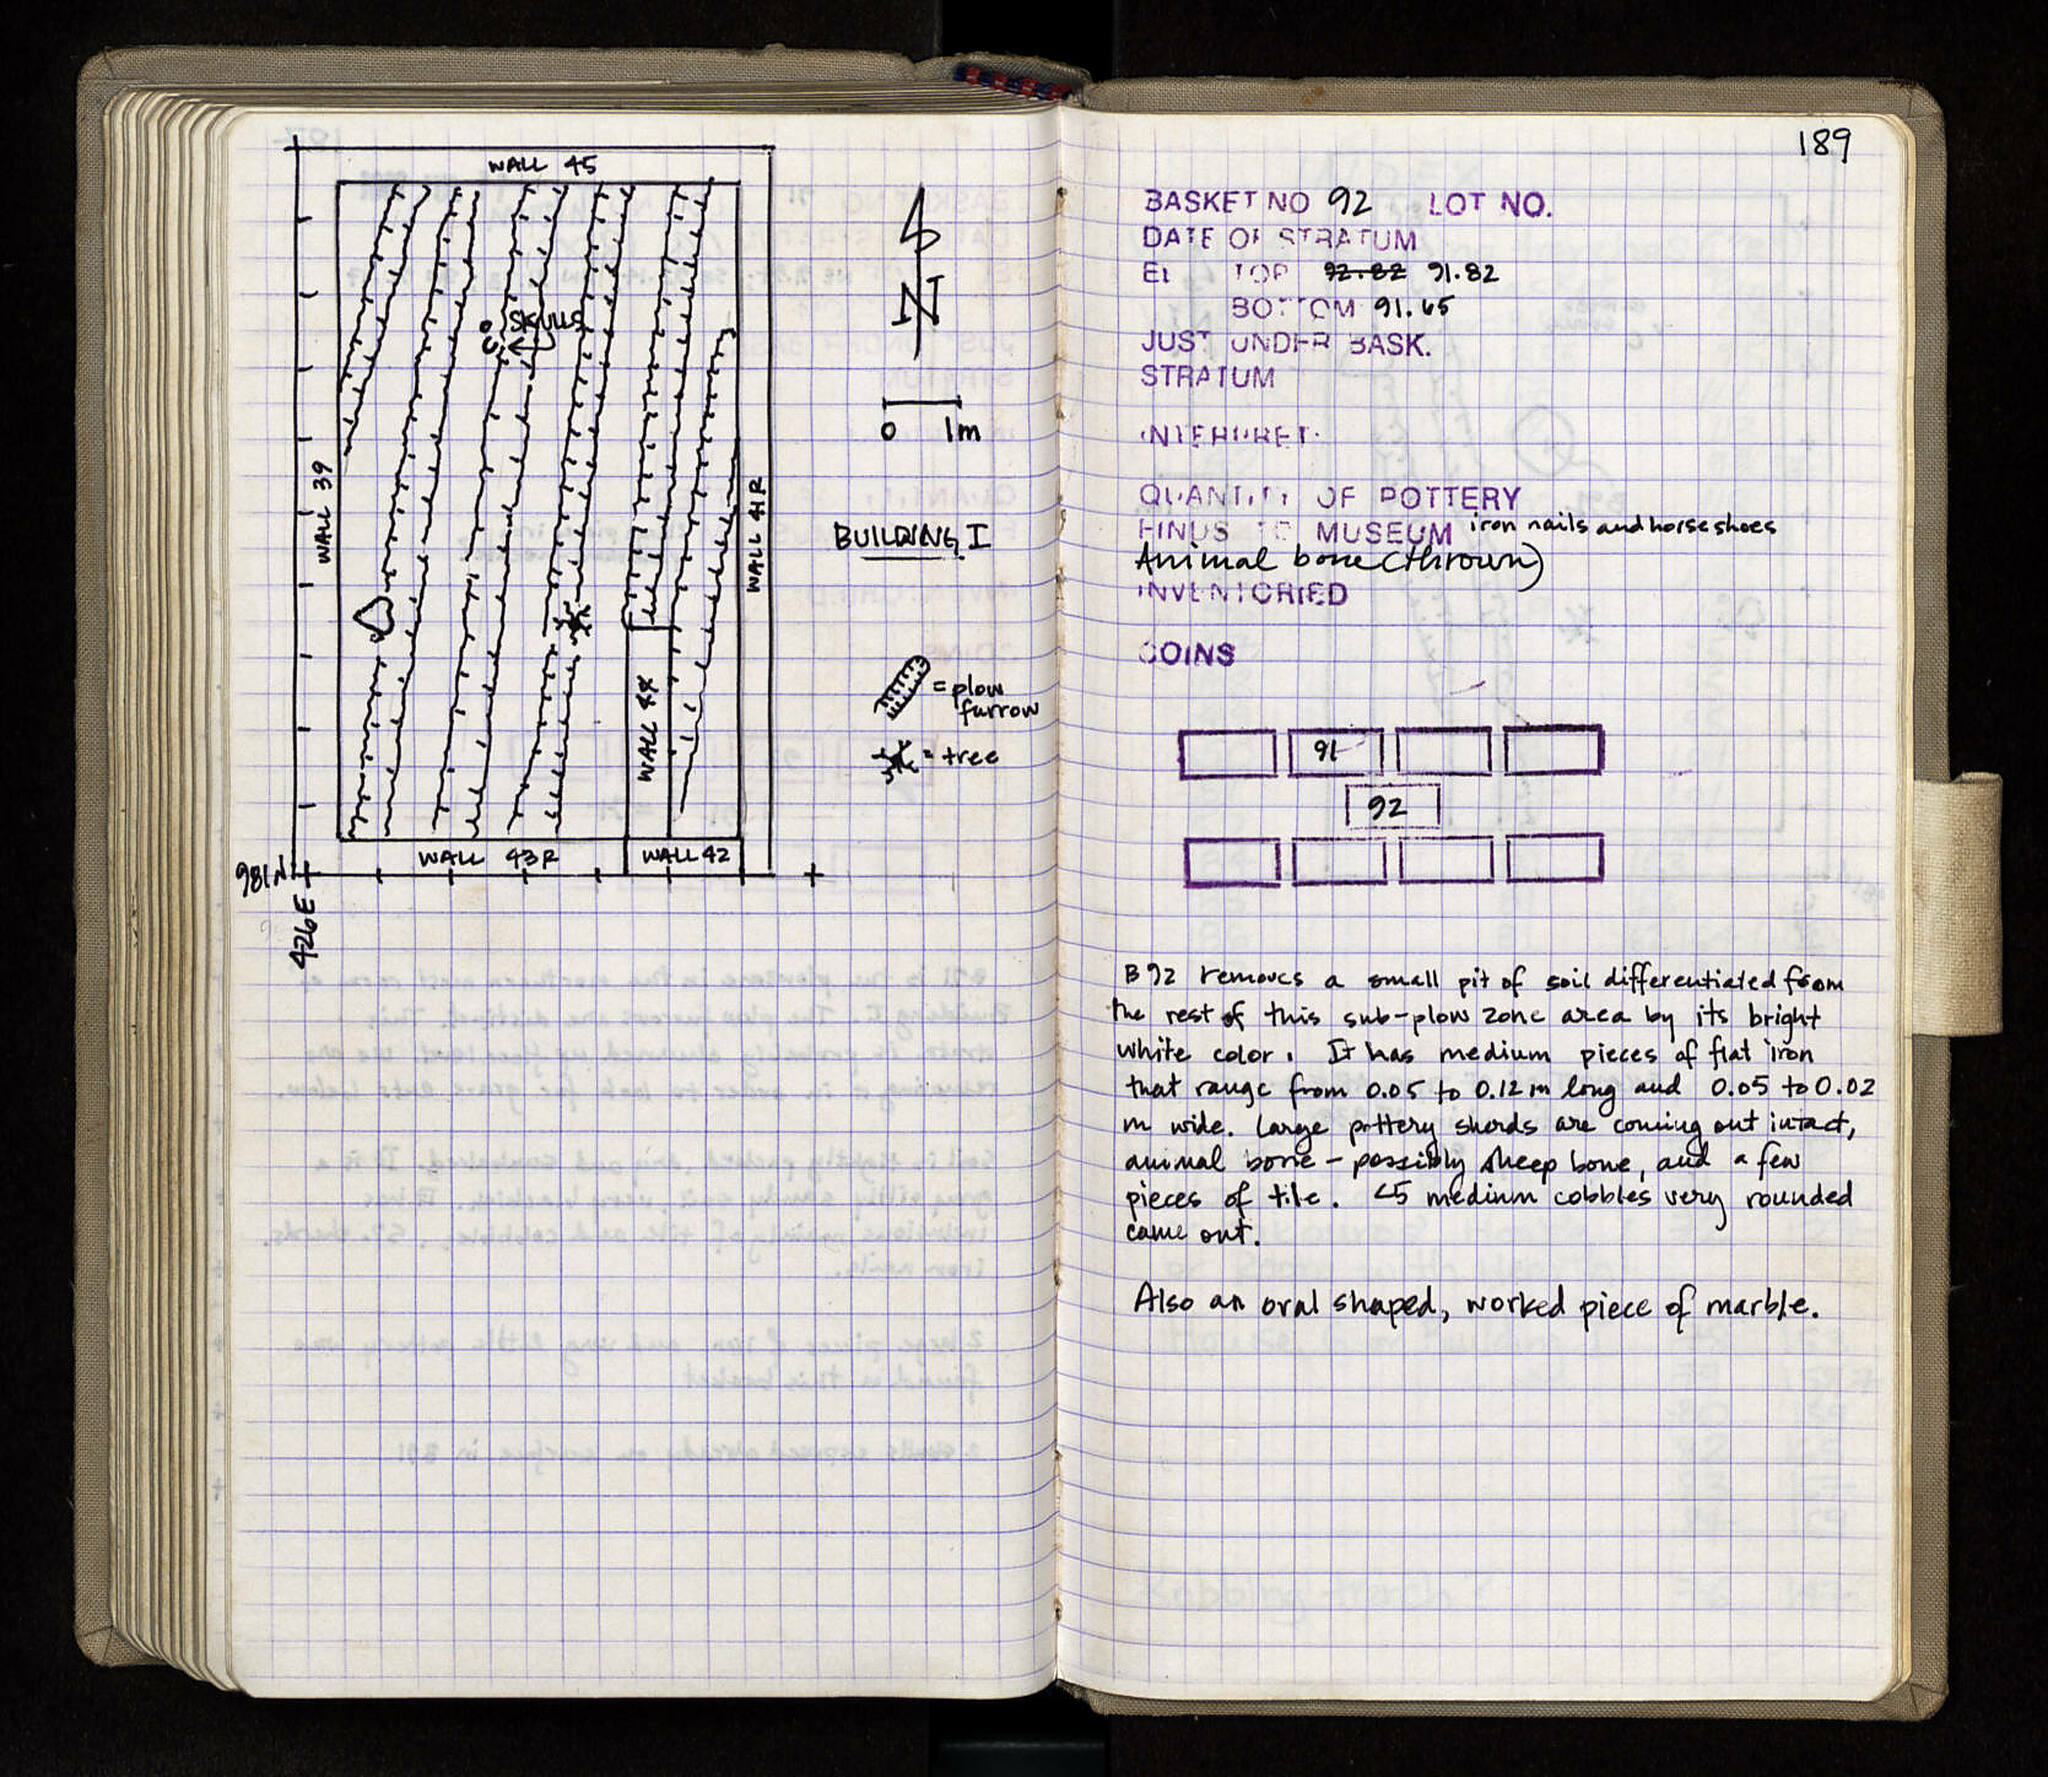 WALL 45
SKULLS
WALL 39
WALL 41R
WALL 44
WALL 43R
WALL 42
981N
426E
N
0 1m
BUILDING I
= plow
furrow
= tree
189
BASKET NO 92 LOT NO.
DATE OF STRATUM
EL TOP 92.82 91.82
BOTTOM 91.65
JUST UNDER BASK.
STRATUM
INTERPRET.
QUANTITY OF POTTERY
FINDS TO MUSEUM iron nails and horse shoes
Animal bone (thrown)
INVENTORIED
COINS
91
92
B92 removes a small pit of soil differentiated from
the rest of this sub-plow zone area by its bright
white color. It has medium pieces of flat iron
that range from 0.05 to 0.12 m long and 0.05 to 0.02
m wide. Large pottery sherds are coming out intact,
animal bone - possibly sheep bone, and a few
pieces of tile. <5 medium cobbles very rounded
came out.
Also an oval shaped, worked piece of marble.